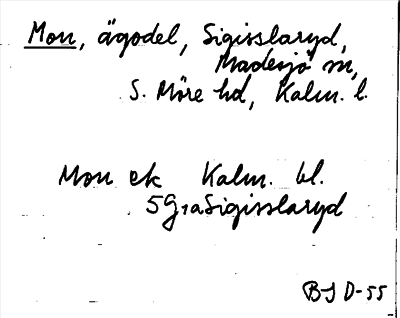 Mon, ägodel, Sigisslaryd,
Madesjö sn,
S. Möre hd, Kalm. l.
Mon ek Kalm. bl.
5G1a Sigisslaryd
BJ D-55